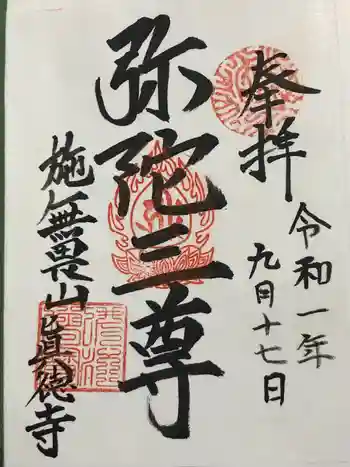 奉拝
令和一年
九月十七日
弥陀三尊
施無畏山眞徳寺